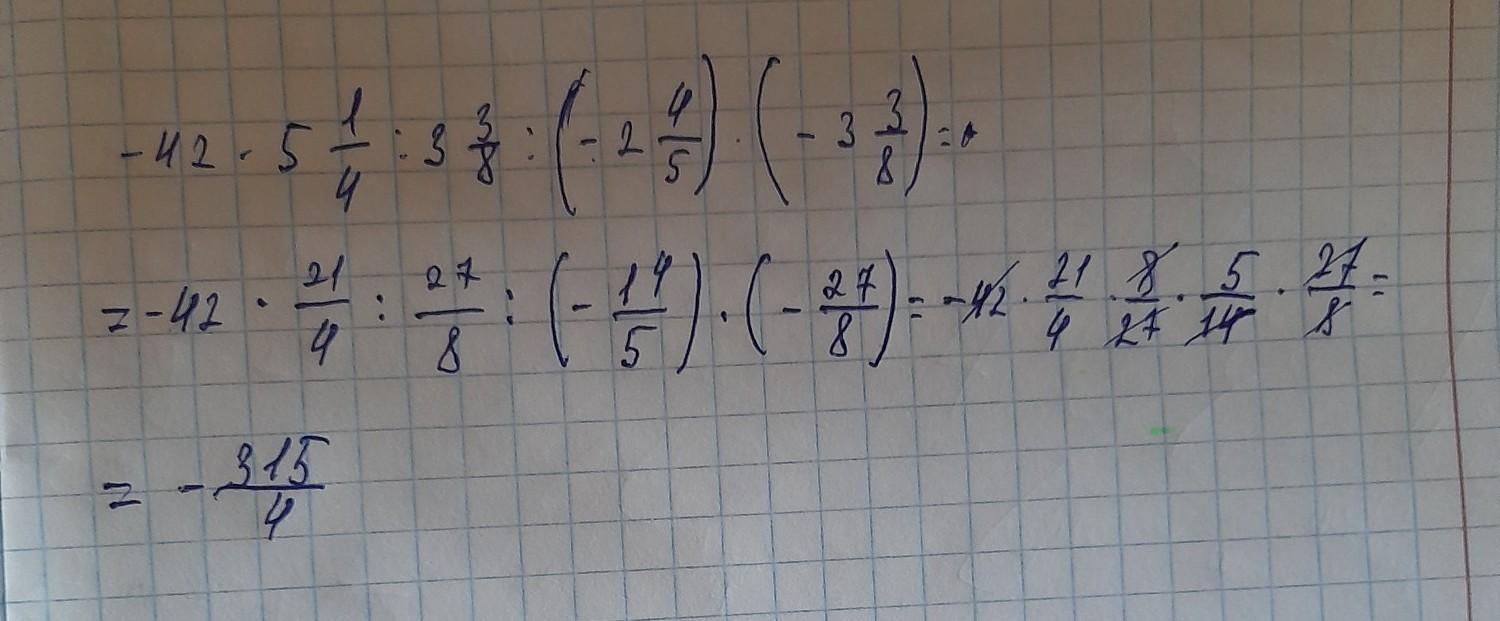 -42 · 5 1/4 : 3 3/8 : (-2 4/5) · (-3 3/8) =
= -42 · 21/4 : 27/8 : (-14/5) · (-27/8) = -42 · 21/4 · 8/27 · 5/14 · 27/8 =
= -315/4